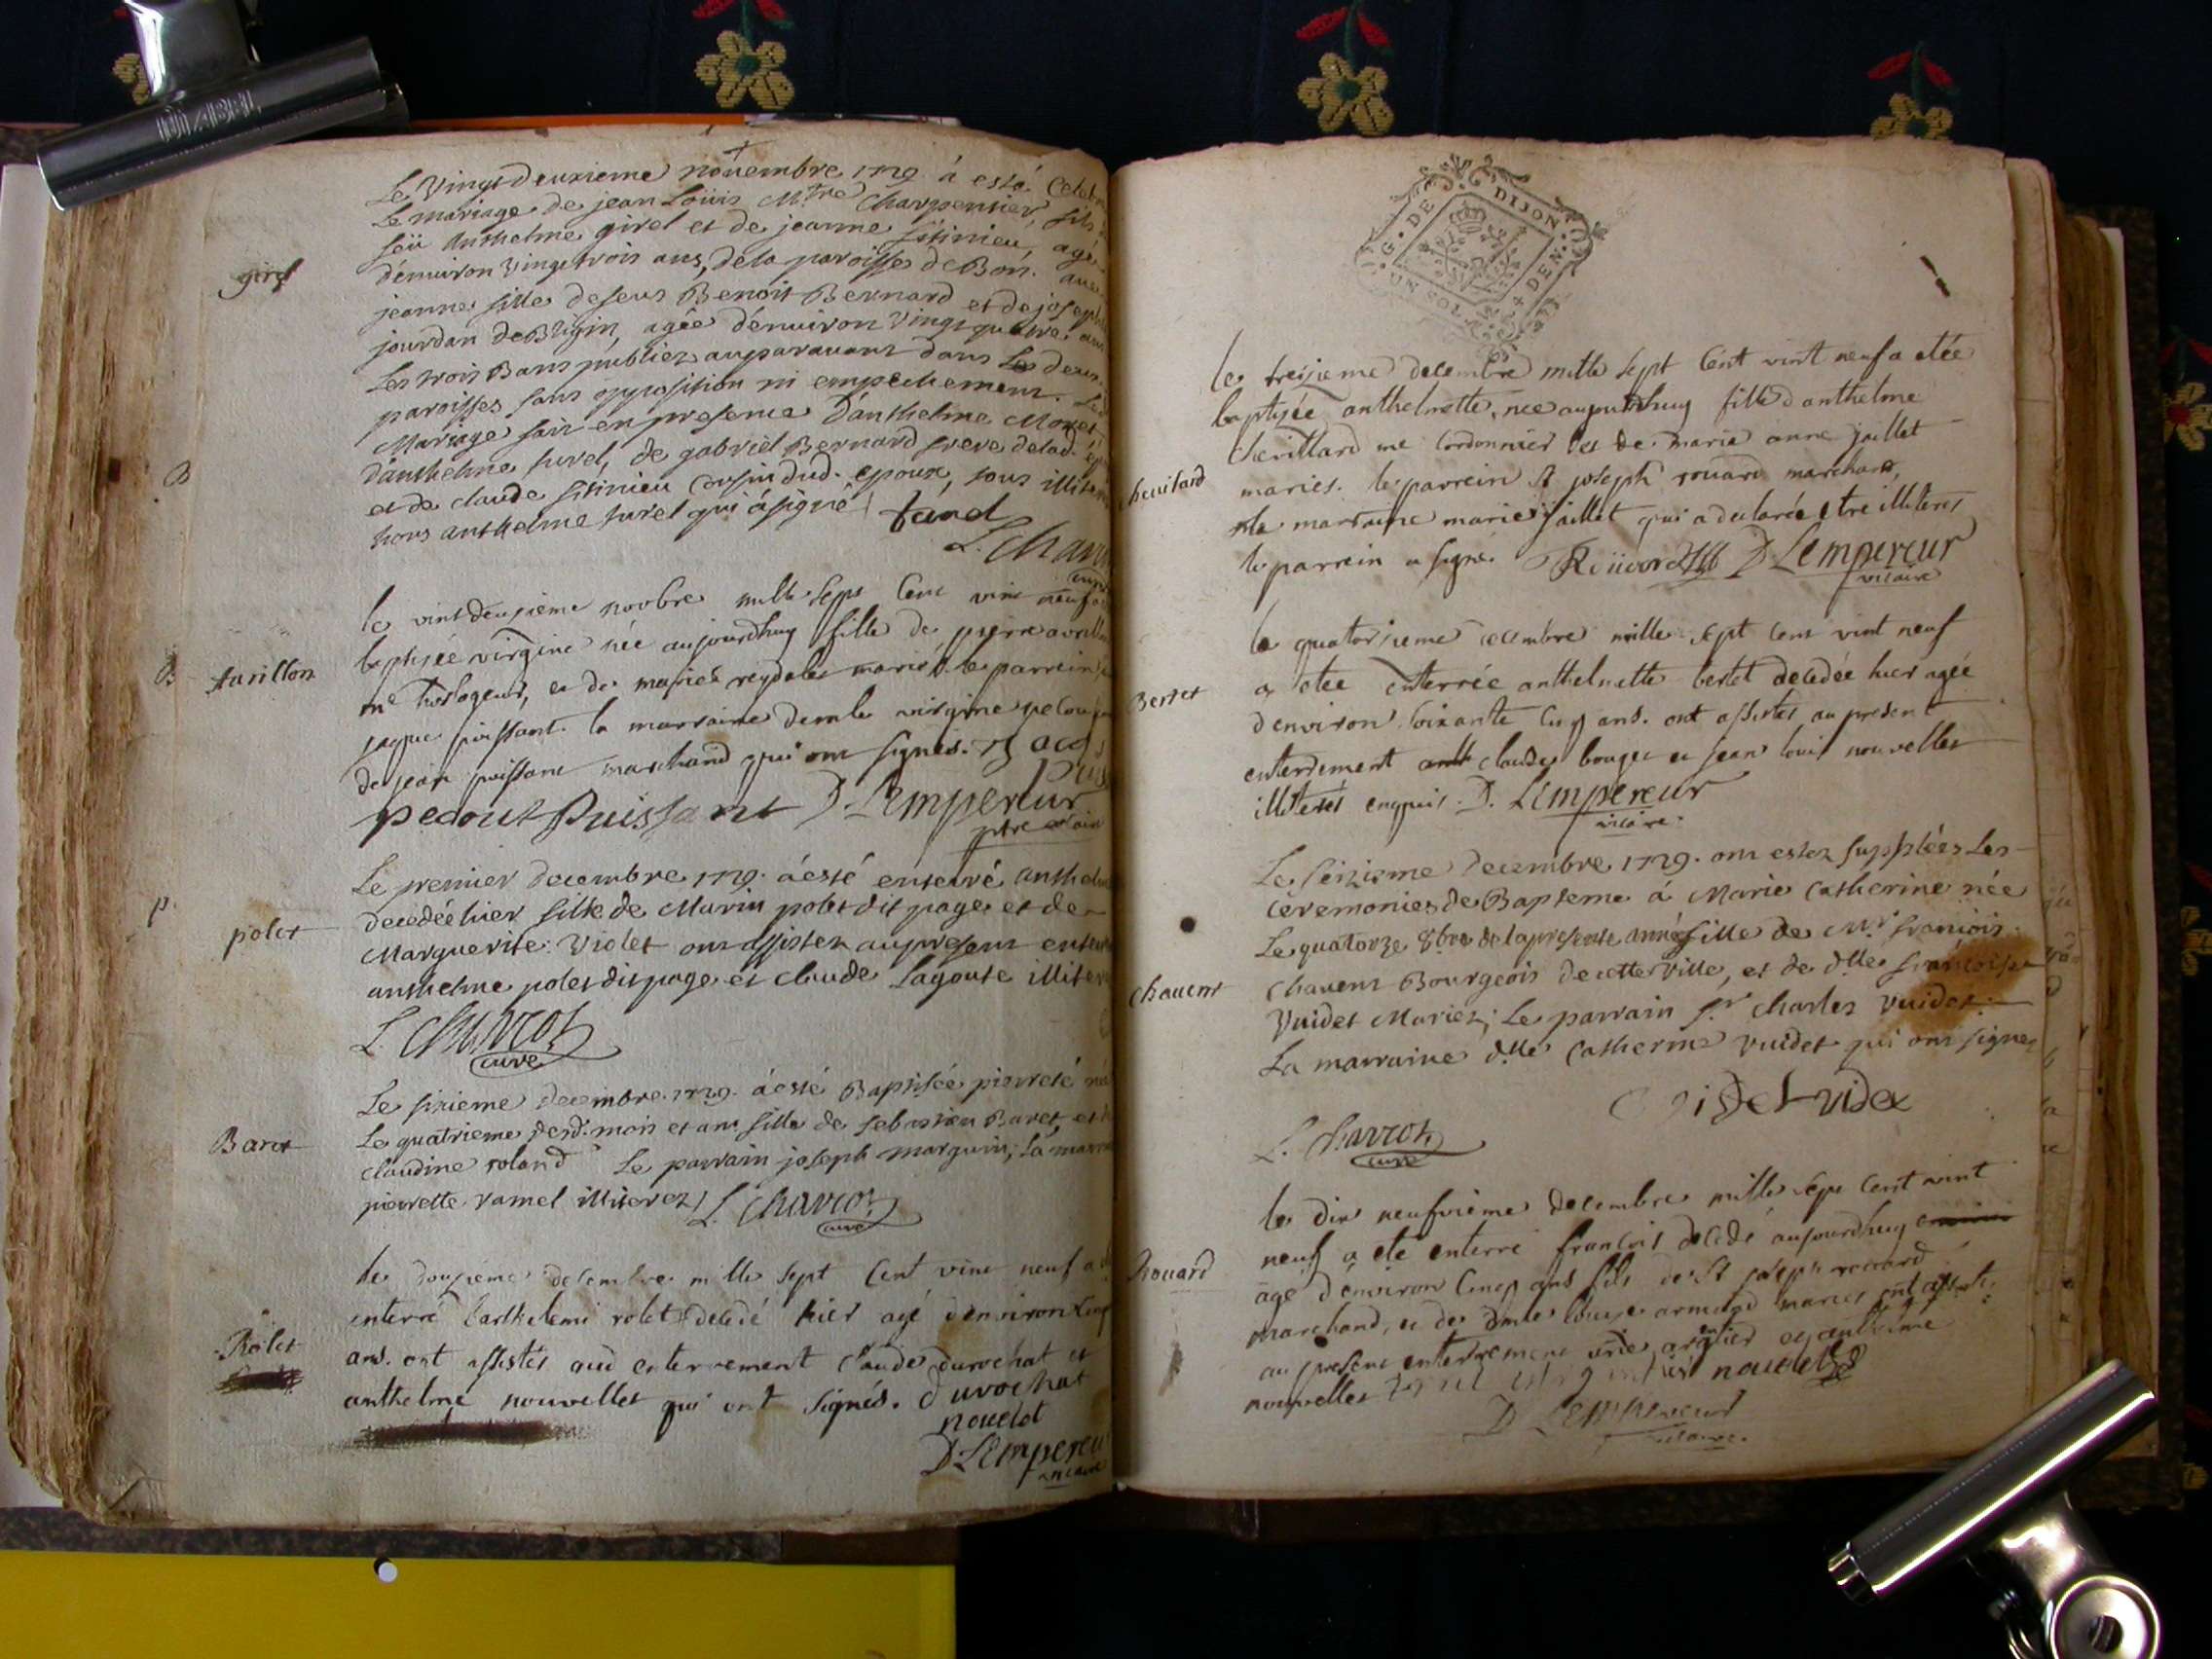 DIABEL
Le Vingt deuxieme novembre 1729 á esté Celebr
Le mariage de jean Loüis Mtre Charpentier, fils
feü Anthelme girel et de jeanne sitinieu, agé
girel
démiron Vingt trois ans, de la paroisse de Bon. avec
jeanne fille de feus Benoit Bernard et de joseph
jourdan de Bligin, agée dénuiron Vingt quatre ans
Les trois Bans publiez auparavant dans Les deux
paroisses sans opposition ni empechement. Led
Mariage fait en presence D'anthelme Monet
d'anthelme surel, de gabriel Bernard frere de lad.
B
et de claude sitinieu cousin dud. epoux, tous illiter
hors anthelme surel qui á signé surel
L. Charv
curé
le vint deuxieme novbre mille sept Cent vint neuf a
baptisée virgine née aujourdhuy fille de pierre avrillon
B Avrillon
me horlogeur, et de marie reydelet mariés. le parrein
jaque puissant la marraine demle virgine pelou
de jean puissant marchand qui ont signés. Jacq
pus
pedout Puissant D. Lempereur
ptre vicair
Le premier decembre 1729. á esté enterré anthel
decedée hier fille de Marin polet dit page et de
p. polet
Marguerite Violet ont assistez au present enter
anthelme polet dit page et claude Lagoute illiter
L. Charvot
curé
Le sixieme decembre 1729. á esté Baptisée pierrete né
Le quatrieme desd. mois et an fille de sebastien Baret, et d
Baret
claudine roland Le parrain joseph marguin; La marra
pierrette ramel illiterez L. Charvot
curé
le douzieme decembre mille sept Cent vint neuf a
enterré barthelemi rolet decedé hier agé denviron Cinq
Rolet
ans. ont assistés aud enterrement claude durochat et
anthelme nouvellet qui ont signés. durochat
nouelet
D Lempereu
vicaire
G. DE DIJON
UN SOL 4 DEN
le treizieme decembre mille sept Cent vint neuf a etée
baptisée anthelmette, née aujourdhuy fille d anthelme
Chevillard me Cordonnier et de marie anne jaillet
chevilard
mariés. le parrein st joseph rouard marchand,
la marraine marie jaillet qui a declarée etre illiterés
le parrein a signé. Roüard D Lempereur
vicaire
le quatorzieme decembre mille sept cent vint neuf
a etée enterrée anthelmette bertet decedée hier agée
Bertet
d environ soixante cinq ans. ont assistés au present
enterrement claude bouget et jean louis nouvellet
illiterés enquis. D. Lempereur
vicaire.
Le seizieme decembre 1729. ont estez supplées Les
Ceremonies de Bapteme á Marie Catherine née
Le quatorze 8bre de la presente année fille de Mr. francois
chavent
Chavent Bourgeois de cette Ville, et de dlle francoise
Vuidet Mariez; Le parrain sr. Charles Vuidet.
La marraine dlle Catherine Vuidet qui ont signez
C videt videt
L. Charvot
curé
le dix neufvieme decembre mille sept Cent vint
neuf a ete enterré francois decedé aujourdhuy
Rouard
agé d'environ Cinq ans fils de st joseph rouard
marchand, et de dmle louise armand mariés ont assisté
au present enterrement et anthelme
nouvellet nouelet
D Lempereur
vicaire.